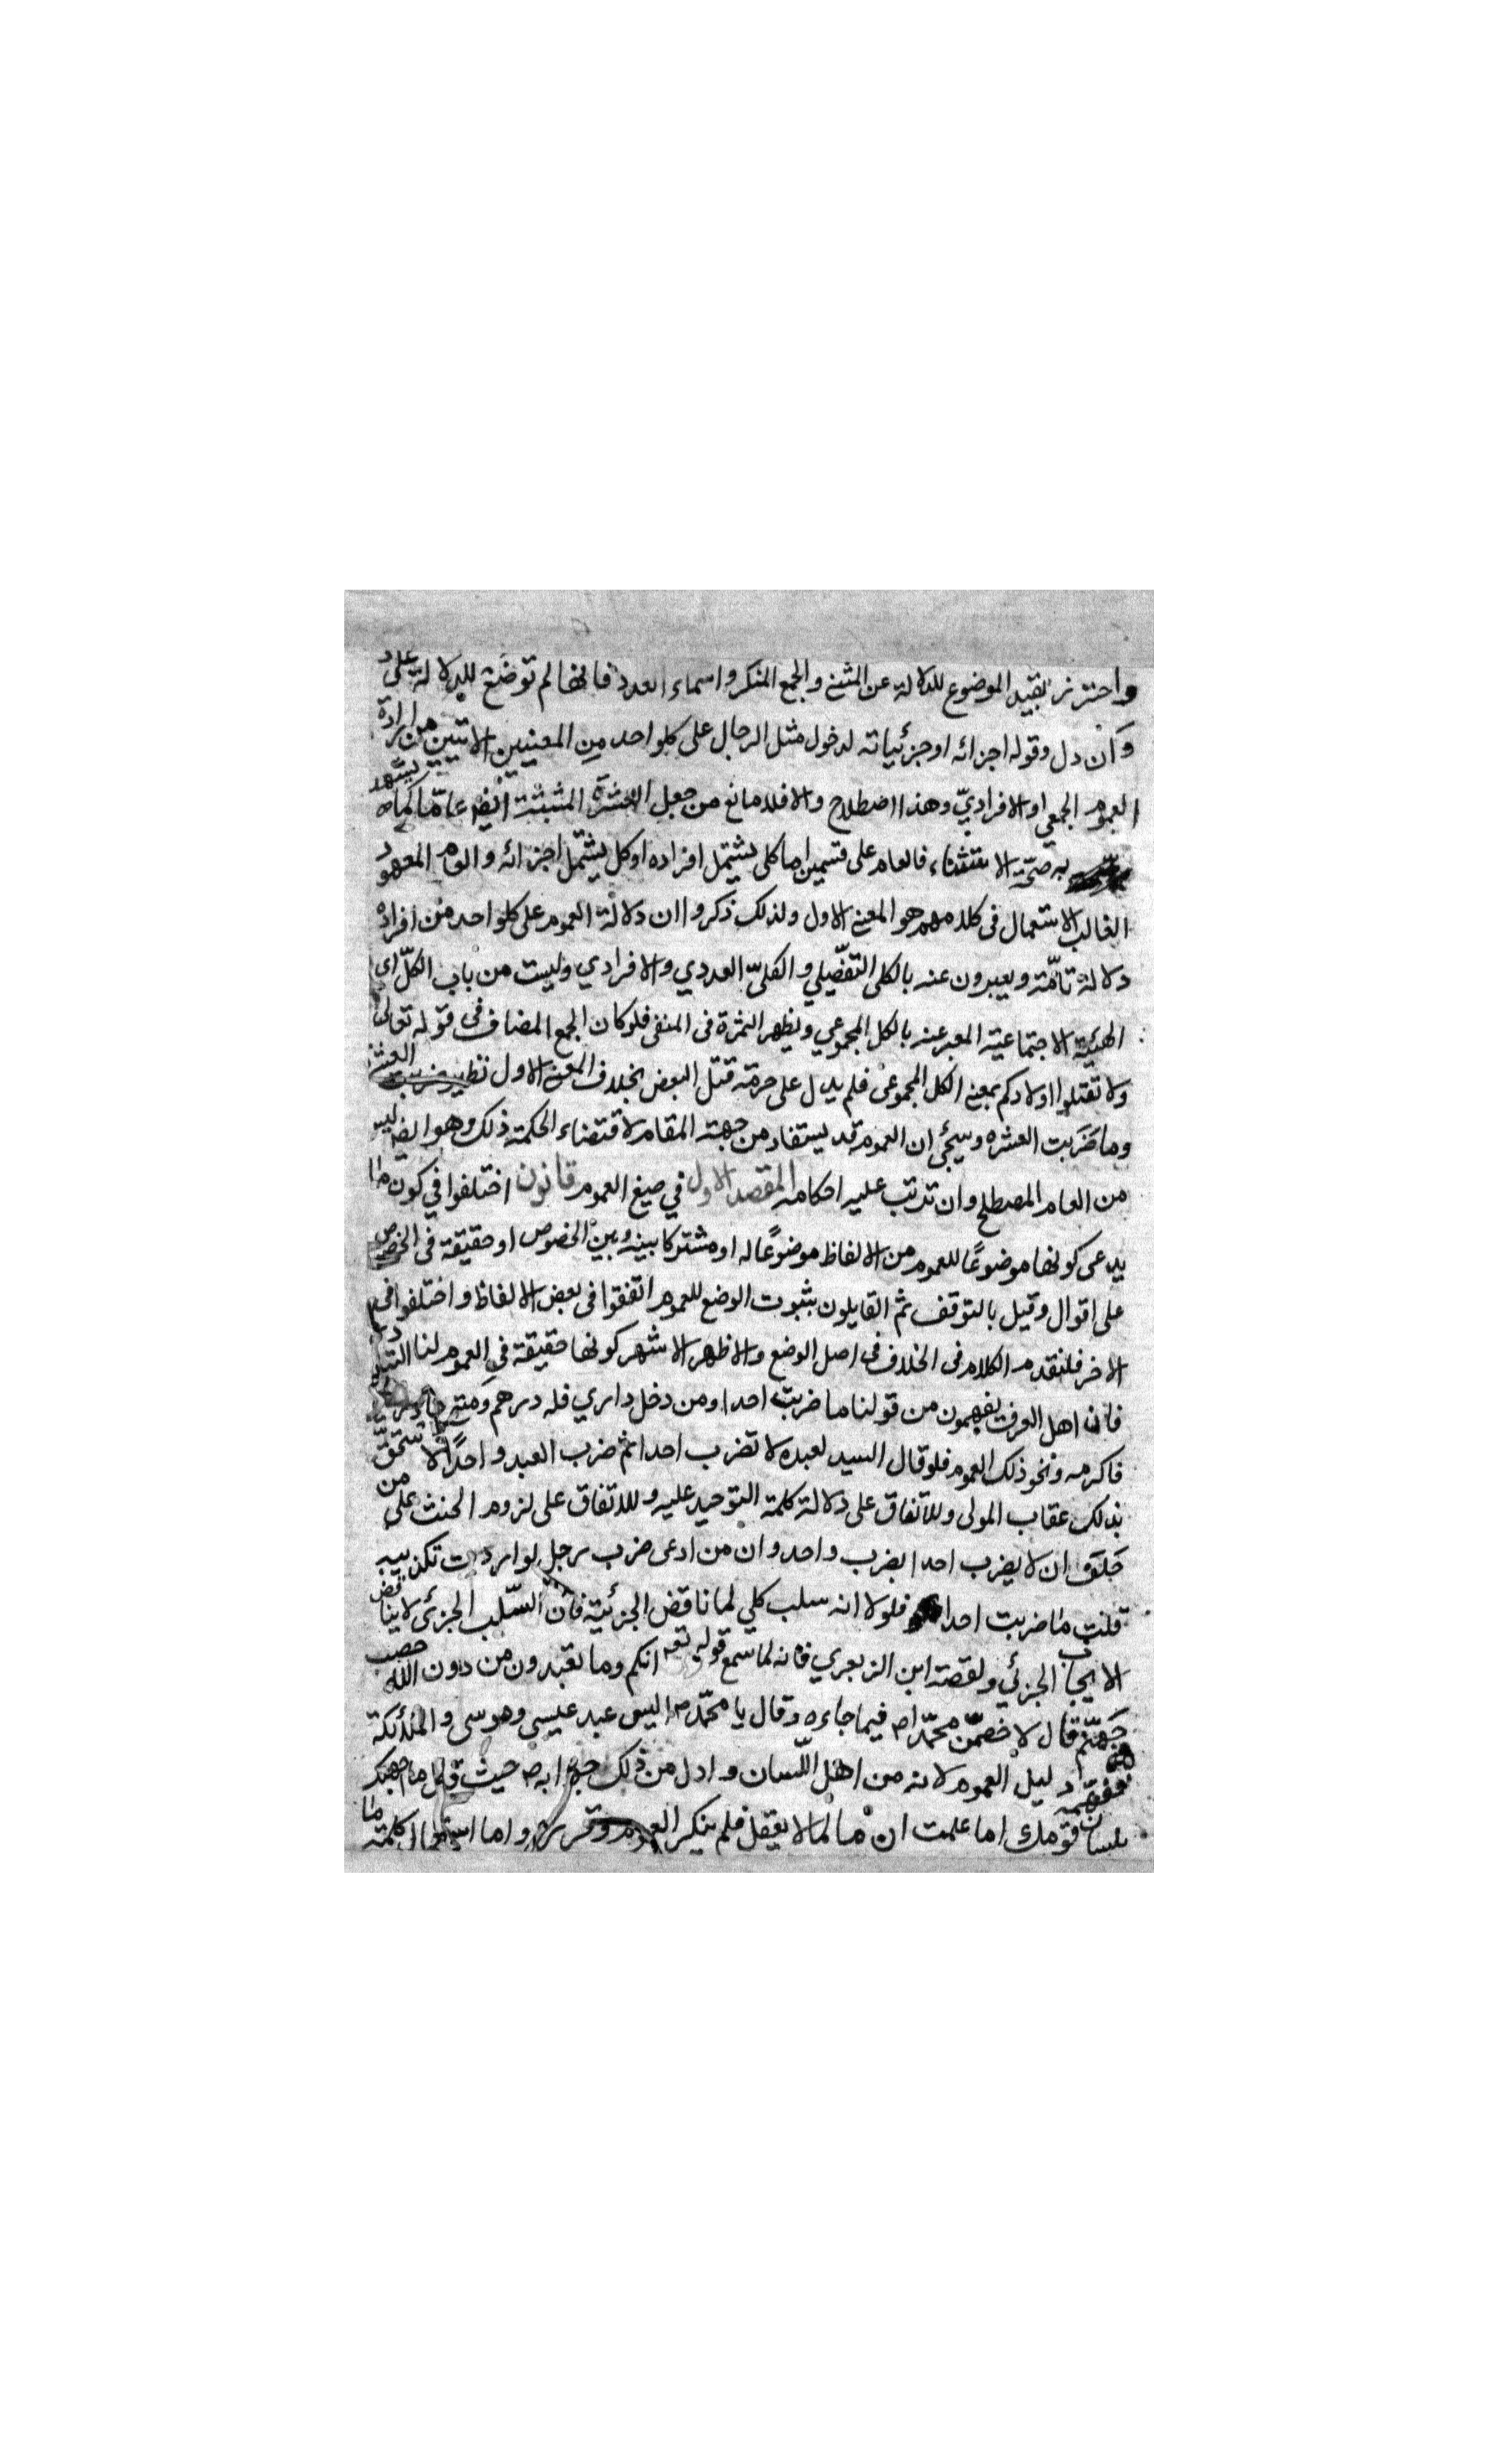 واحترز بقيد الموضوع للدلالة عن المثنى والجمع المنكر واسماء العدد فانها لم توضع للدلالة على د
وان دل وقوله اجزائه او جزئياته لدخول مثل الرجال على كلواحد من المعنيين الاتيين من ارادة
العموم الجمعي او الافرادي وهذا اصطلاح والا فلا مانع من جعل العشرة المثبتة ايضا عاما كما يشهد
به صحة الاستثناء فالعام على قسمين اما كلى يشتمل افراده او كل يشتمل اجزائه والعام المعهود
الغالب الاستعمال فى كلامهم هو المعنى الاول ولذلك ذكروا ان دلالة العموم على كلواحد من افراده
دلالة تامّة ويعبرون عنه بالكلى التفصيلي والكلىّ العددي والافرادي وليست من باب الكلّ اى
الهيئة الاجتماعية المعبر عنه بالكل المجموعي ويظهر الثمرة فى المنفى فلو كان الجمع المضاف فى قوله تعالى
ولا تقتلوا اولادكم بمعنى الكل المجموعى فلم يدل على حرمة قتل البعض بخلاف المعنى الاول نظير ضربت العشرة
وما ضربت العشره وسيجئ ان العموم قد يستفاد من جهة المقام لاقتضاء الحكمة ذلك وهو ايضا ليس
من العام المصطلح وان تدتب عليه احكامه المقصد الاول في صيغ العموم قانون اختلفوا في كون ما
يدعى كونها موضوعًا للعموم من الالفاظ موضوعًا له او مشتركا بينه وبين الخصوص او حقيقة فى الخصوص
على اقوال وقيل بالتوقف ثم القايلون بثبوت الوضع للعموم اتفقوا فى بعض الالفاظ واختلفوا فى
الاخر فلنقدم الكلام فى الخلاف فى اصل الوضع والاظهر الاشهر كونها حقيقة في العموم لنا التبادر
فان اهل العرف يفهمون من قولنا ما ضربت احدا ومن دخل داري فله درهم ومتى جاءك زيد
فاكرمه ونحو ذلك العموم فلو قال السيد لعبده لا تضرب احدا ثم ضرب العبد واحدًا لاستحق
بذلك عقاب المولى وللاتفاق على دلالة كلمة التوحيد عليه وللاتفاق على لزوم الحنث على من
حلف ان لا يضرب احدا بضرب واحد وان من ادعى ضرب رجل لو اردت تكذيبه
قلت ما ضربت احدا فلولا انه سلب كلي لما ناقض الجزئية فان السّلب الجزئى لا يناقض
الايجاب الجزئي ولقصة ابن الزبعري فانه لما سمع قوله تعه انكم وما تعبدون من دون الله حصب
جهنّم قال لاخصمّن محمّداص فيما جاءه وقال يا محمّدص اليس عبد عيسى وموسى والملائكة
ففهمه دليل العموم لانه من اهل اللسان وادل من ذلك جوابه ص حيث قال ما اجهلك
بلسان قومك اما علمت ان ما لما لا يعقل فلم ينكر العموم وقرره واما استعمال كلمة ما